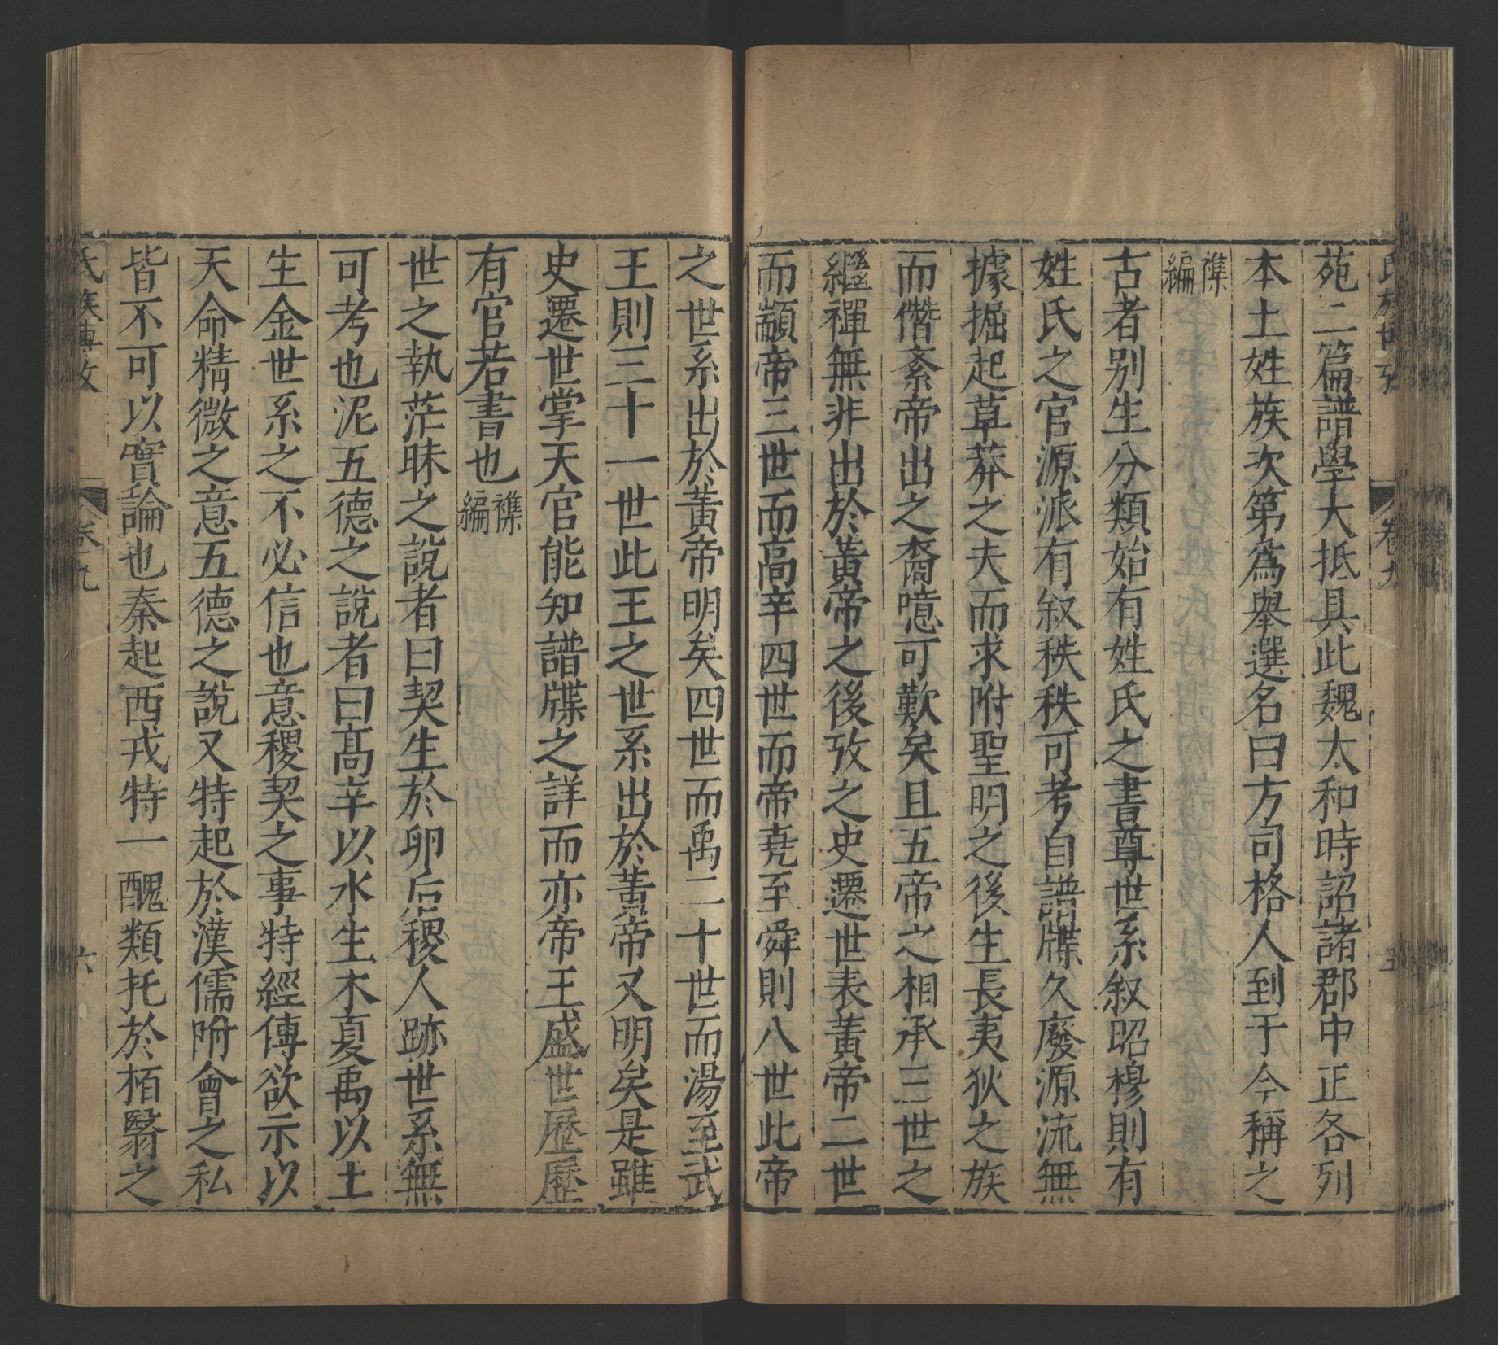 氏族博攷
卷九
五
苑二篇譜學大抵具此魏太和時詔諸郡中正各列
本土姓族次第為舉選名曰方司格人到于今稱之
襍編
古者別生分類始有姓氏之書尊世系叙昭穆則有
姓氏之官源派有叙秩秩可考自譜牒久廢源流無
據掘起草莽之夫而求附聖明之後生長夷狄之族
而僭紊帝出之裔噫可歎矣且五帝之相承三世之
繼禪無非出於黃帝之後攷之史遷世表黃帝二世
而顓帝三世而高辛四世而帝堯至舜則八世此帝
之世系出於黃帝明矣四世而禹二十世而湯至武
王則三十一世此王之世系出於黃帝又明矣是雖
史遷世掌天官能知譜牒之詳而亦帝王盛世歷歷
有官若書也襍編
世之執茫昧之說者曰契生於卵后稷人跡世系無
可考也泥五德之說者曰高辛以水生木夏禹以土
生金世系之不必信也意稷契之事特經傳欲示以
天命精微之意五德之說又特起於漢儒附會之私
皆不可以實論也秦起西戎特一醜類托於栢翳之
氏族博攷
卷九
六